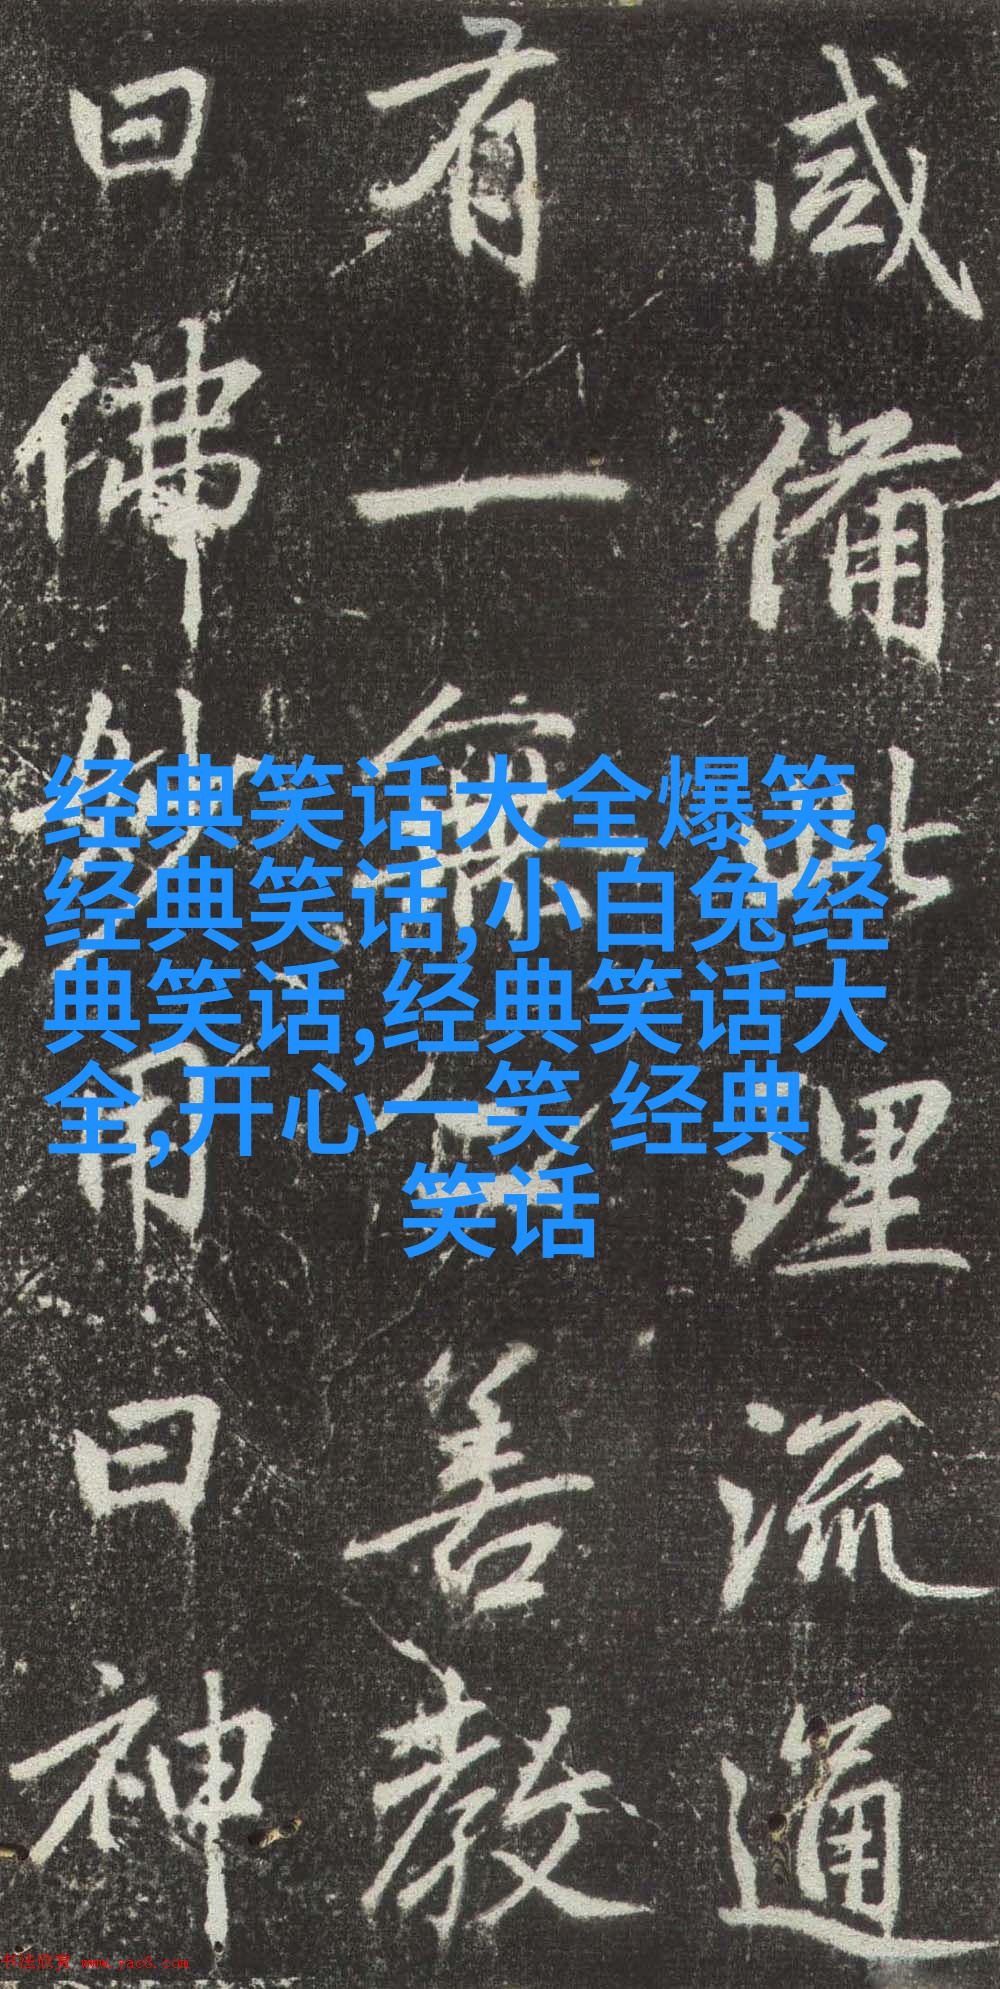 咸備此理流通
有一無善教
曰佛妙用曰神
经典笑话大全爆笑,
经典笑话,小白兔经
典笑话,经典笑话大
全,开心一笑 经典
笑话
书法欣赏 www.yac8.com